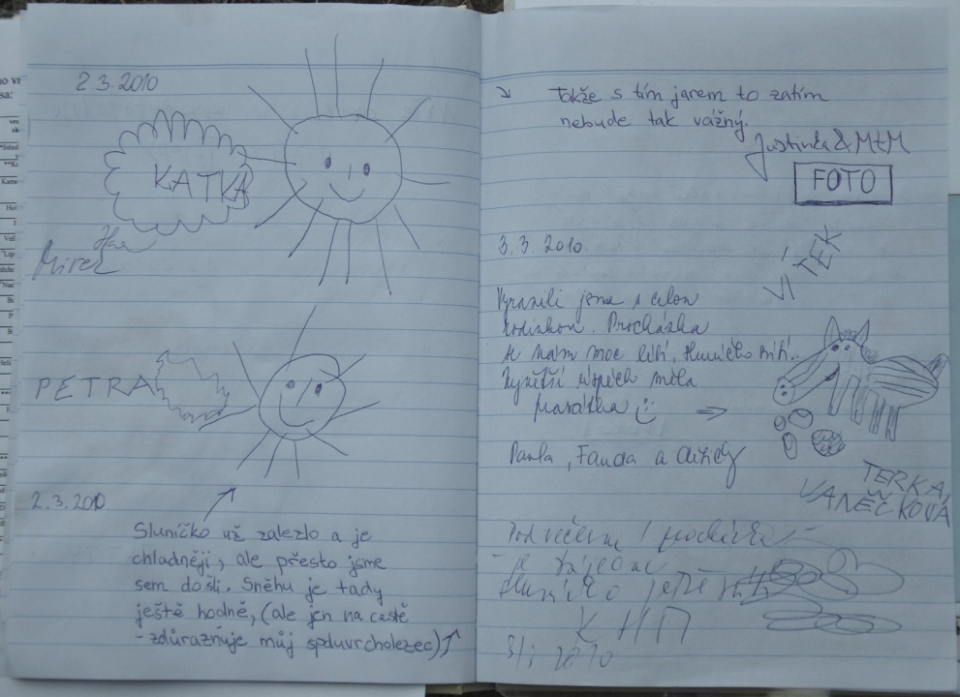 2.3.2010
KATKA
Mirek
PETRA
2.3.2010
Sluníčko už zalezlo a je
chladněji, ale přesto jsme
sem došli. Sněhu je tady
ještě hodně, (ale jen na cestě
- zdůrazňuje můj spoluvrcholezec)
Takže s tím jarem to zatím
nebude tak vážný.
Justinka & M+M
FOTO
3.3.2010
VÍTEK
Vyrazili jsme s celou
rodinkou. Procházka
se nám moc líbí, sluníčko svítí..
Největší úspěch měla
Pavla, Fanda a dětičky
TERKA,
VANĚČKOVÁ
Podvečerní procházka
je
sluníčko ještě
KHП